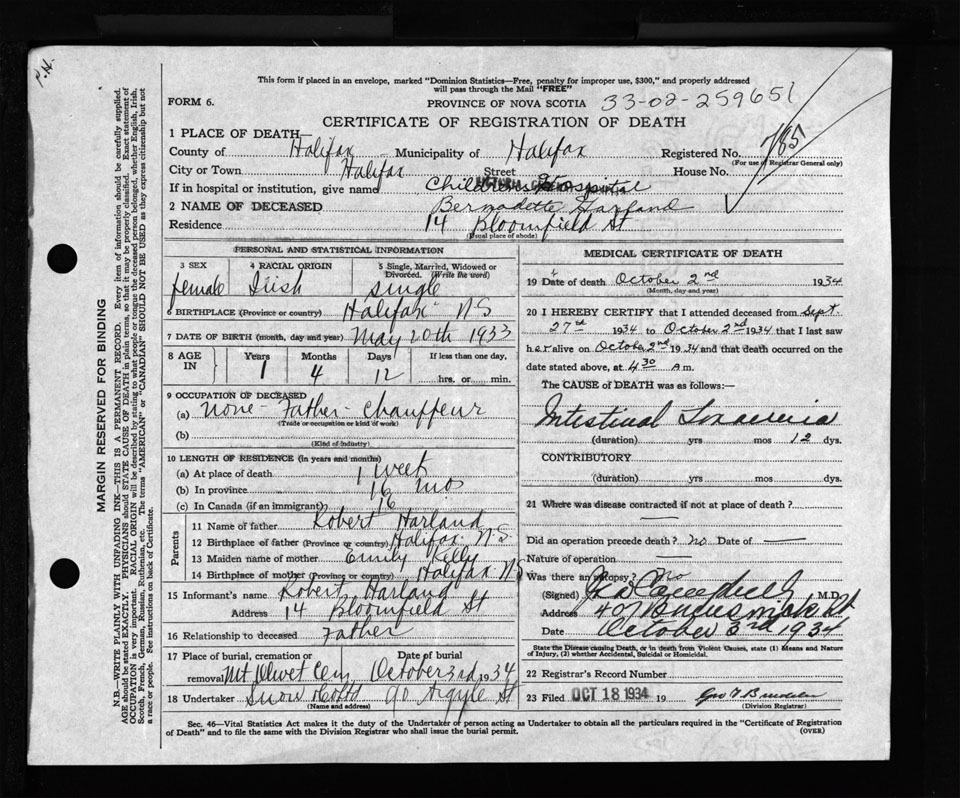 P.H.
This form if placed in an envelope, marked "Dominion Statistics—Free, penalty for improper use, $300," and properly addressed
will pass through the Mail "FREE"
FORM 6.
PROVINCE OF NOVA SCOTIA 33-02-259651
CERTIFICATE OF REGISTRATION OF DEATH
1 PLACE OF DEATH—
County of Halifax Municipality of Halifax Registered No. 785
(For use of Registrar General only)
City or Town Halifax Street House No.
If in hospital or institution, give name Children's Hospital
2 NAME OF DECEASED Bernadette Harland
Residence 14 Bloomfield St
(Usual place of abode)
PERSONAL AND STATISTICAL INFORMATION
3 SEX 4 RACIAL ORIGIN 5 Single, Married, Widowed or
Divorced. (Write the word)
female Irish single
6 BIRTHPLACE (Province or country) Halifax N S
7 DATE OF BIRTH (month, day and year) May 20th 1933
8 AGE IN Years Months Days If less than one day,
1 4 12 hrs. or min.
9 OCCUPATION OF DECEASED
(a) None - Father - Chauffeur
(Trade or occupation or kind of work)
(b)
(Kind of industry)
10 LENGTH OF RESIDENCE (in years and months)
(a) At place of death 1 week
(b) In province 16 mos
(c) In Canada (if an immigrant) 16
Parents
11 Name of father Robert Harland
12 Birthplace of father (Province or country) Halifax N.S.
13 Maiden name of mother Emily Kelly
14 Birthplace of mother (Province or country) Halifax NS
15 Informant's name Robert Harland
Address 14 Bloomfield St
16 Relationship to deceased Father
17 Place of burial, cremation or Date of burial
removal Mt. Olivet Cem. October 3rd 1934
18 Undertaker Snow 90 Argyle St
(Name and address)
MEDICAL CERTIFICATE OF DEATH
19 Date of death October 2nd 1934
(Month, day and year)
20 I HEREBY CERTIFY that I attended deceased from Sept.
27th 1934 to October 2nd 1934 that I last saw
her alive on October 2nd 1934 and that death occurred on the
date stated above, at 4.30 A m.
The CAUSE of DEATH was as follows:—
Intestinal Toxaemia
(duration) yrs mos 12 dys.
CONTRIBUTORY
(duration) yrs mos dys.
21 Where was disease contracted if not at place of death?
Did an operation precede death? No Date of —
Nature of operation —
Was there an autopsy? No
(Signed) M.D.
Address 407
Date October 3rd 1934
State the Disease causing Death, or in death from Violent Causes, state (1) Means and Nature
of Injury, (2) whether Accidental, Suicidal or Homicidal.
22 Registrar's Record Number
23 Filed OCT 18 1934 19
(Division Registrar)
Sec. 46—Vital Statistics Act makes it the duty of the Undertaker or person acting as Undertaker to obtain all the particulars required in the "Certificate of Registration
of Death" and to file the same with the Division Registrar who shall issue the burial permit. (OVER)
MARGIN RESERVED FOR BINDING
N.B.—WRITE PLAINLY WITH UNFADING INK—THIS IS A PERMANENT RECORD. Every item of information should be carefully supplied.
AGE should be stated EXACTLY. PHYSICIANS should STATE CAUSE OF DEATH in plain terms, so that it may be properly classified. Exact statement of
OCCUPATION is very important. RACIAL ORIGIN will be described by stating to what people or tongue the deceased person belonged, whether English, Irish,
Scotch, French, German, Russian, Ruthenian, etc. The terms "AMERICAN" or "CANADIAN" SHOULD NOT BE USED as they express citizenship but not
a race or people. See instructions on back of Certificate.